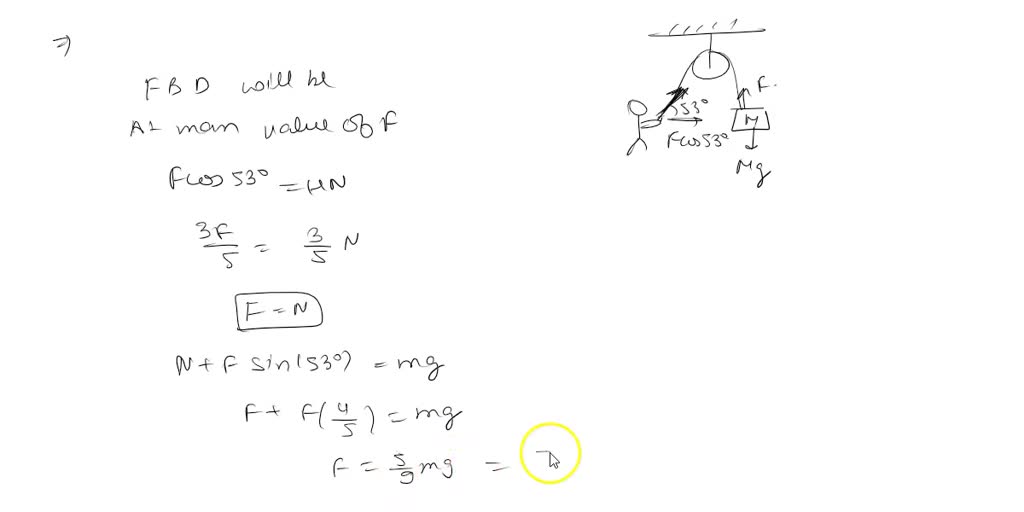 ⇒
FBD will be
At man value of F
F cos 53° = μN
3F/5 = 3/5 N
F = N
N + F sin(53°) = mg
F + F(4/5) = mg
F = 5/9 mg =
F
53°
F cos 53°
M
Mg